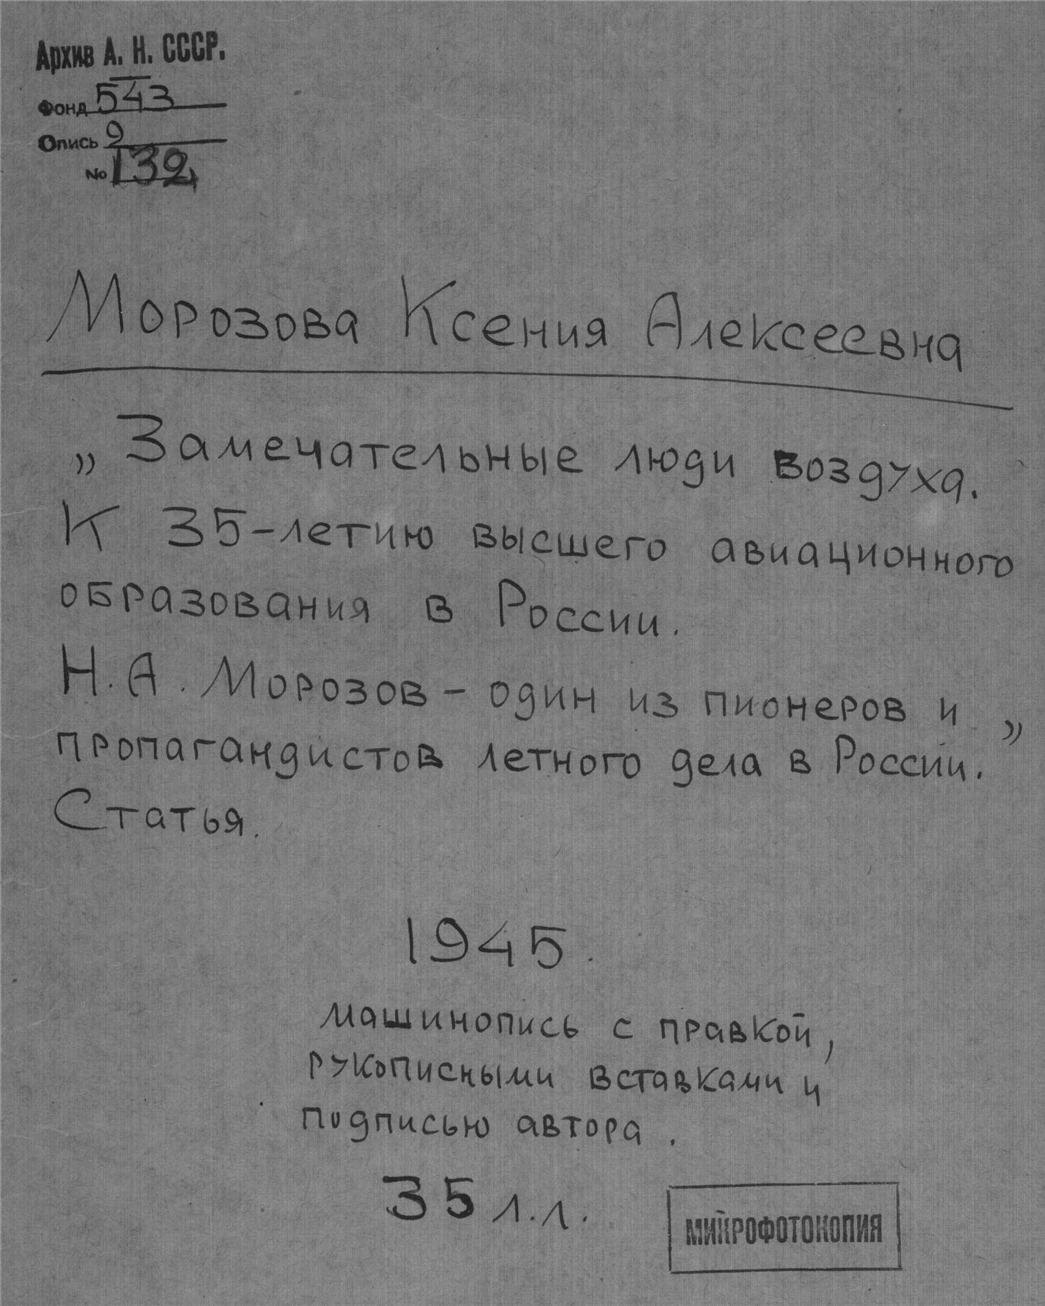 Архив А. Н. СССР.
Фонд 543
Опись 9
№ 132
Морозова Ксения Алексеевна
„Замечательные люди воздуха.
К 35-летию высшего авиационного
образования в России.
Н.А. Морозов – один из пионеров и
пропагандистов летного дела в России.”
Статья.
1945.
машинопись с правкой,
рукописными вставками и
подписью автора.
35 л.л.
МИКРОФОТОКОПИЯ